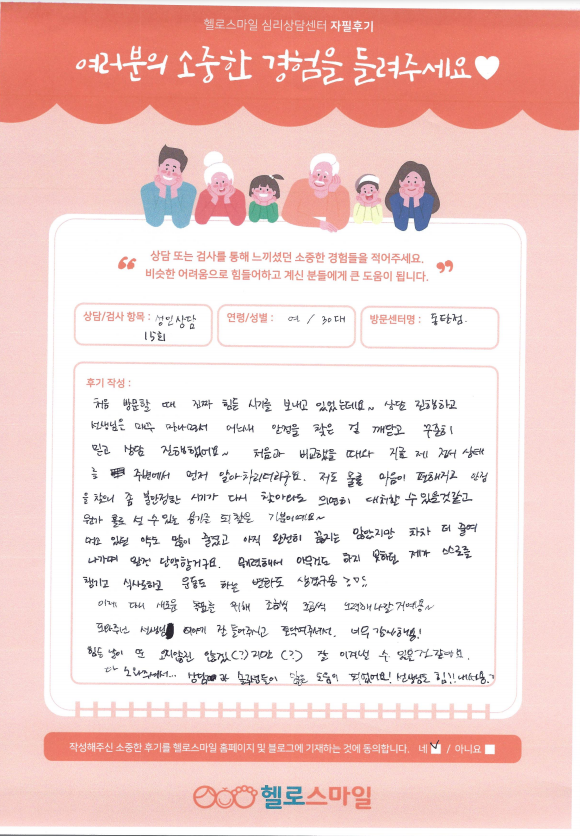 헬로스마일 심리상담센터 자필후기
여러분의 소중한 경험을 들려주세요
상담 또는 검사를 통해 느끼셨던 소중한 경험들을 적어주세요.
비슷한 어려움으로 힘들어하고 계신 분들에게 큰 도움이 됩니다.
상담/검사 항목 : 성인상담
15회
연령/성별 : 여 / 30대
방문센터명 : 동탄점.
후기 작성 :
처음 방문할 때 진짜 힘든 시기를 보내고 있었는데요~ 상담 진행하고
선생님은 매주 만나면서 어느새 안정을 찾은 걸 깨닫고 꾸준히
믿고 상담 진행했어요~ 처음과 비교했을 때와 지금 제 정서 상태
를 주변에서 먼저 알아차리더라구요. 저도 마음이 편해지고 안정
을 찾으니 좀 불안정한 시기가 다시 찾아와도 의연히 대처할 수 있을것같고
뭔가 홀로 설 수 있는 용기를 되찾은 기분이에요~
먹고 있던 약도 많이 줄였고 아직 완전히 끊지는 않았지만 차차 더 줄여
나가며 완전 단약할거구요. 무기력해서 아무것도 하지 못하던 제가 스스로
챙기고 식사하고 운동도 하는 변화도 생겼구용
이제 다시 새로운 목표를 위해 조금씩 조금씩 노력해나갈거에용~
도와주신 선생님 이야기 잘 들어주시고 도와주셔서 너무 감사해용!
힘든 날이 또 오지않진 않겠(?)지만(?) 잘 이겨낼 수 있을것같아요.
다 도와주셔서... 상담 과 솔루션들이 많은 도움이 되었어요! 선생님도 힘!! 내세용.
작성해주신 소중한 후기를 헬로스마일 홈페이지 및 블로그에 기재하는 것에 동의합니다. 네 / 아니요
헬로스마일